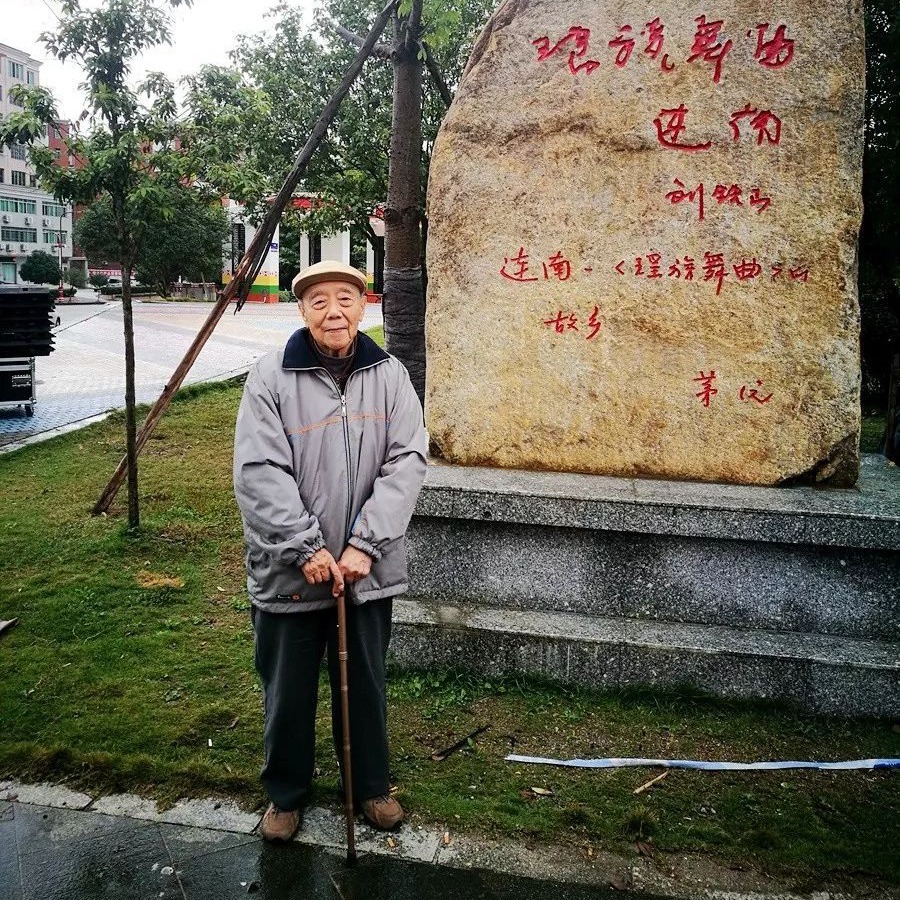 瑶族舞曲
连南
刘铁山
连南-《瑶族舞曲》的
故乡
茅沅